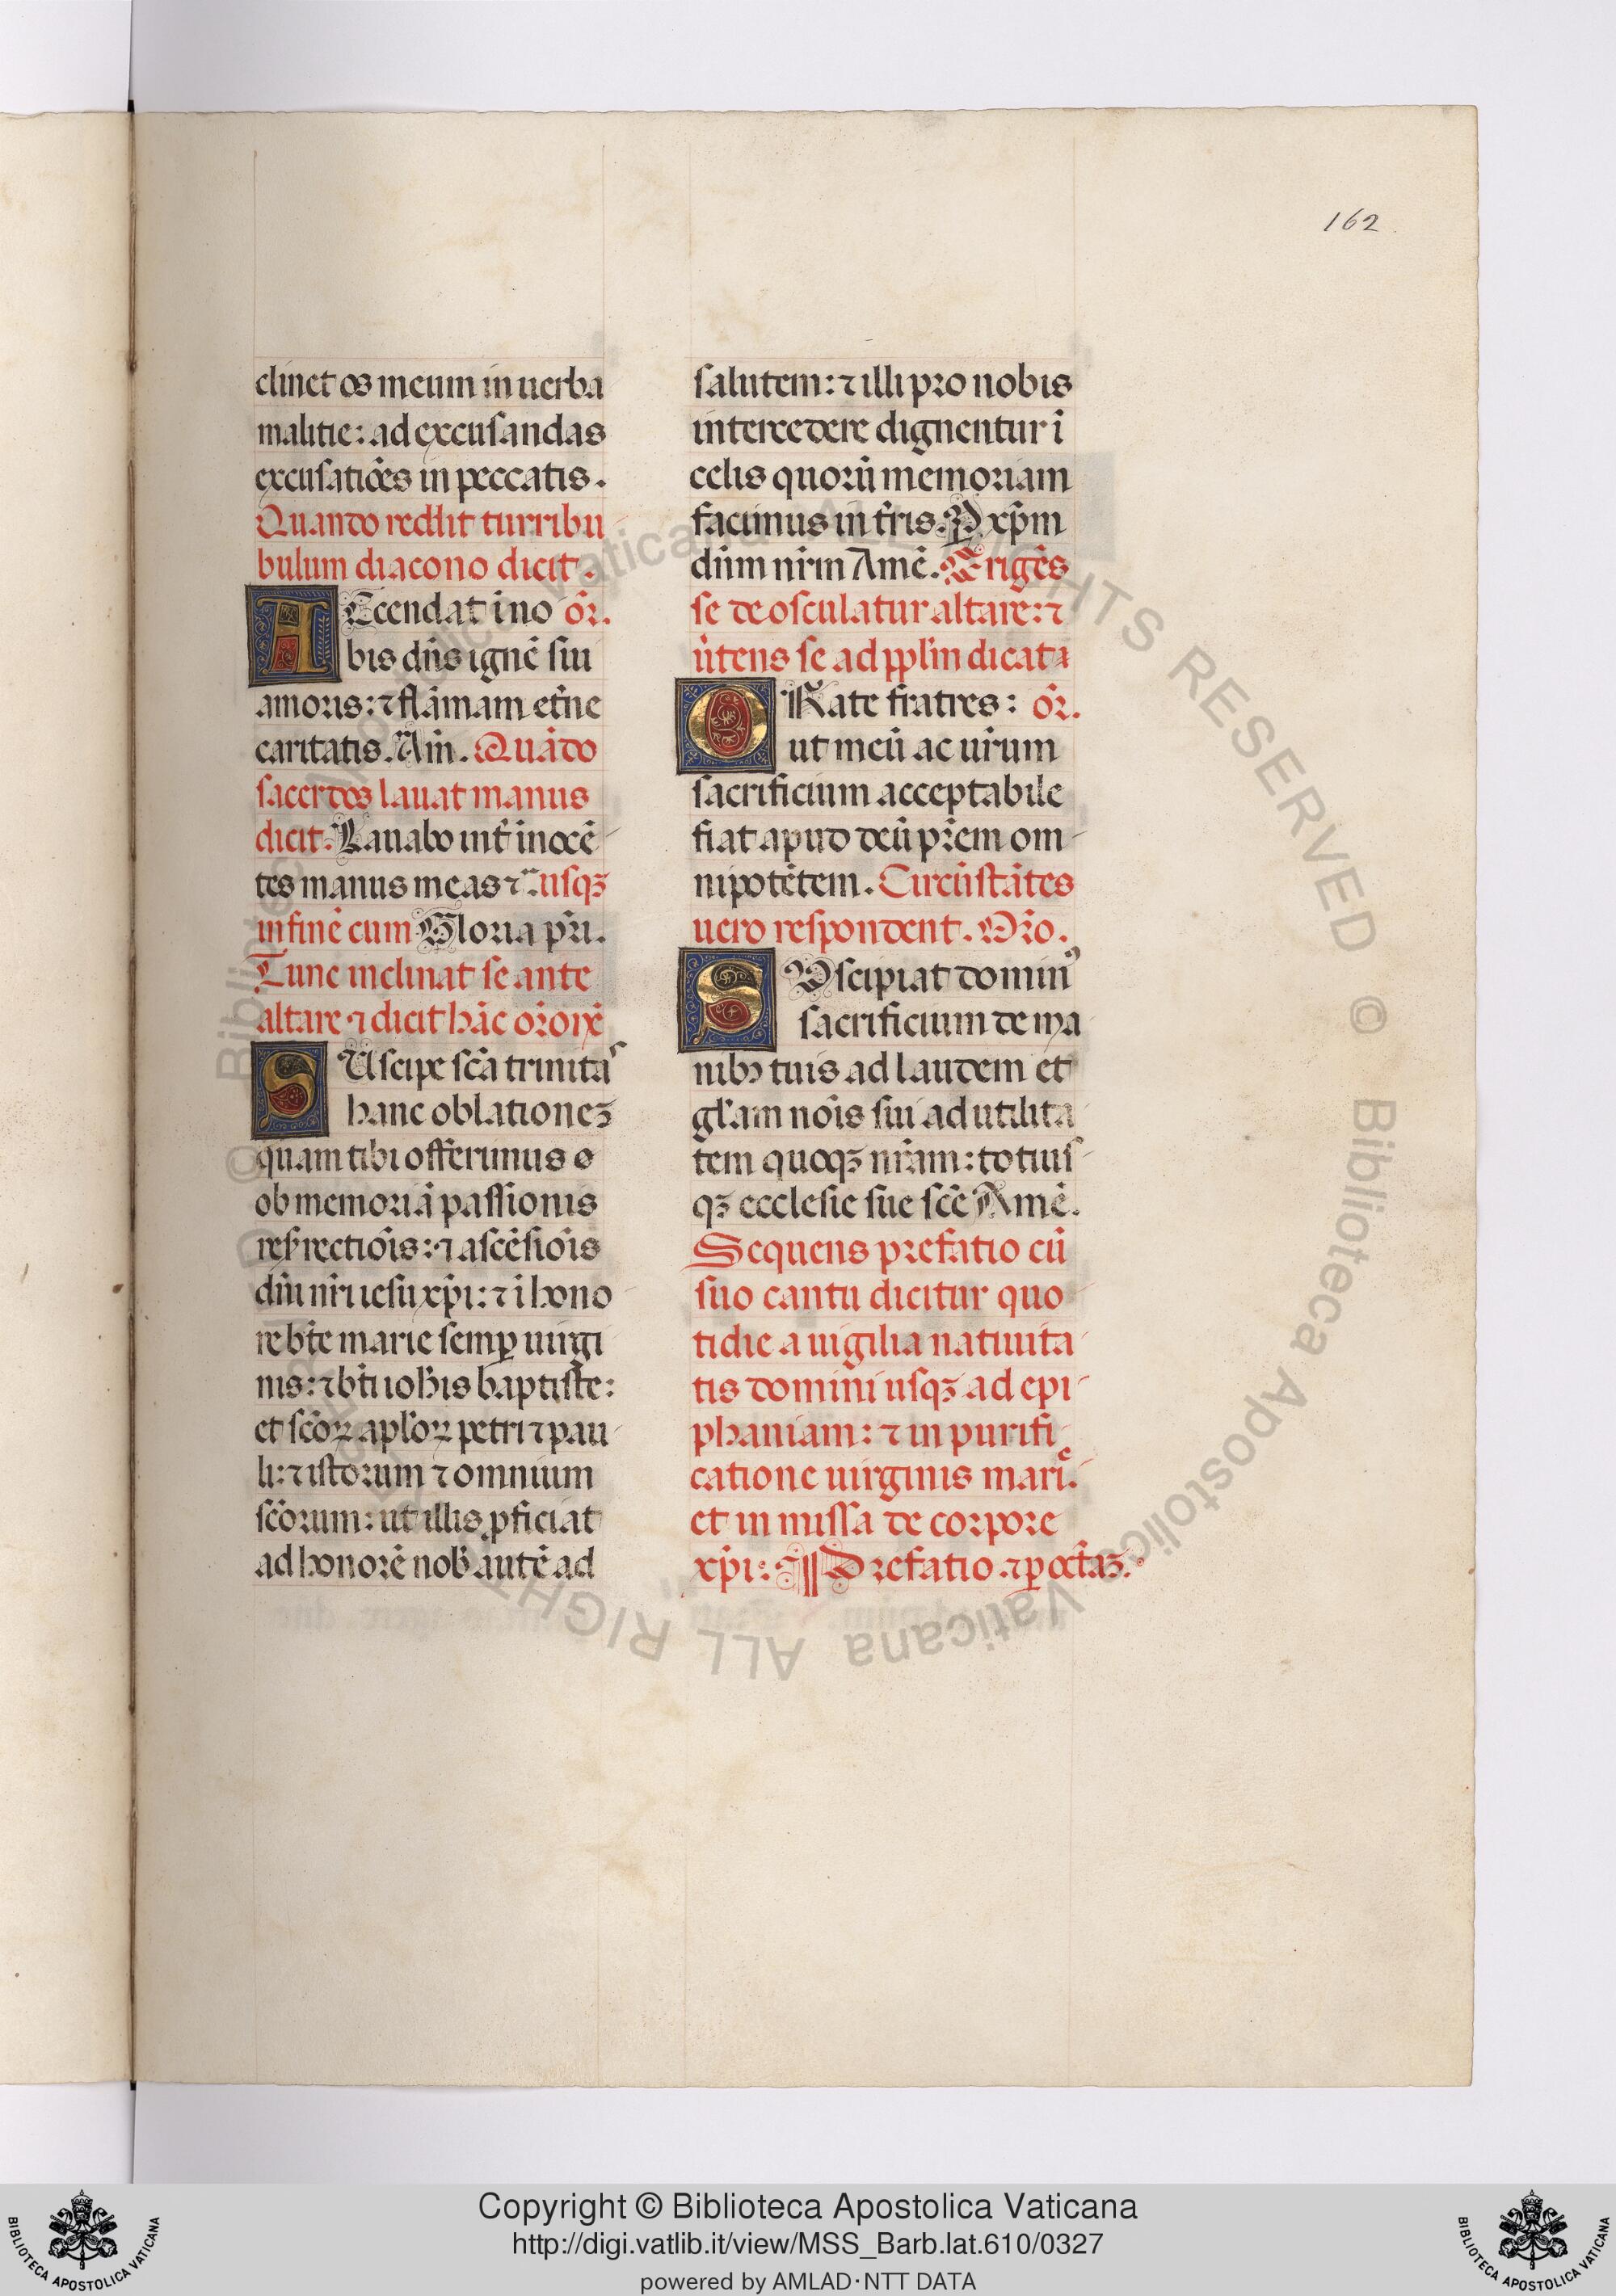 162
clinet os meum in uerba
malitie: ad excusandas
excusatiões in peccatis.
Quando reddit turribu
bulum diacono dicit.
ACcendat i no or̃.
bis dñs ignẽ sui
amoris: ⁊ flãmam et̃ne
caritatis. Am̃. Quãdo
sacerdos lauat manus
dicit. Lauabo int̃ inocẽ
tes manus meas ⁊c̃. usqꝫ
in finẽ cum Gloria pr̃i.
Tunc inclinat se ante
altare ⁊ dicit hãc or̃onẽ
SUscipe sc̃a trinitas
hanc oblationeꝫ
quam tibi offerimus o
ob memoriã passionis
resr̃rectiõis: ⁊ ascẽsiõis
dñi nr̃i iesu xp̃i: ⁊ i hono
re bt̃e marie semꝑ uirgi
nis: ⁊ bt̃i ioh̃is baptiste:
et sc̃oꝝ apl̃oꝝ petri ⁊ pau
li: ⁊ istorum ⁊ omnium
sc̃orum: ut illis ꝓficiat
ad honorẽ nob̃ autẽ ad
salutem: ⁊ illi pro nobis
intercedere dignentur ĩ
celis quorũ memoriam
facimus in tr̃is. P xp̃m
dñm nr̃m Amẽ. Erigẽs
se deosculatur altare: ⁊
ũtens se ad ppl̃m dicat
ORate fratres: or̃.
ut meũ ac ur̃um
sacrificium acceptabile
fiat apud deũ pr̃em om
nipotẽtem. Circũstãtes
uero respondent. Or̃o.
SUscipiat dominꝰ
sacrificium de ma
nibꝫ tuis ad laudem et
gl̃am noĩs sui ad utilita
tem quoqꝫ nr̃am: totius
qꝫ ecclesie sue sc̃e Amẽ.
Sequens prefatio cũ
suo cantu dicitur quo
tidie a uigilia natiuita
tis domini usqꝫ ad epi
phaniam: ⁊ in purifi
catione uirginis marie.
et in missa de corpore
xp̃i: ¶ Prefatio ⁊ ꝑ oct̃aꝫ.
© Biblioteca Apostolica Vaticana ALL RIGHTS RESERVED
© Biblioteca Apostolica Vaticana ALL RIGHTS RESERVED
Copyright © Biblioteca Apostolica Vaticana
http://digi.vatlib.it/view/MSS_Barb.lat.610/0327
powered by AMLAD·NTT DATA
BIBLIOTECA APOSTOLICA VATICANA
BIBLIOTECA APOSTOLICA VATICANA